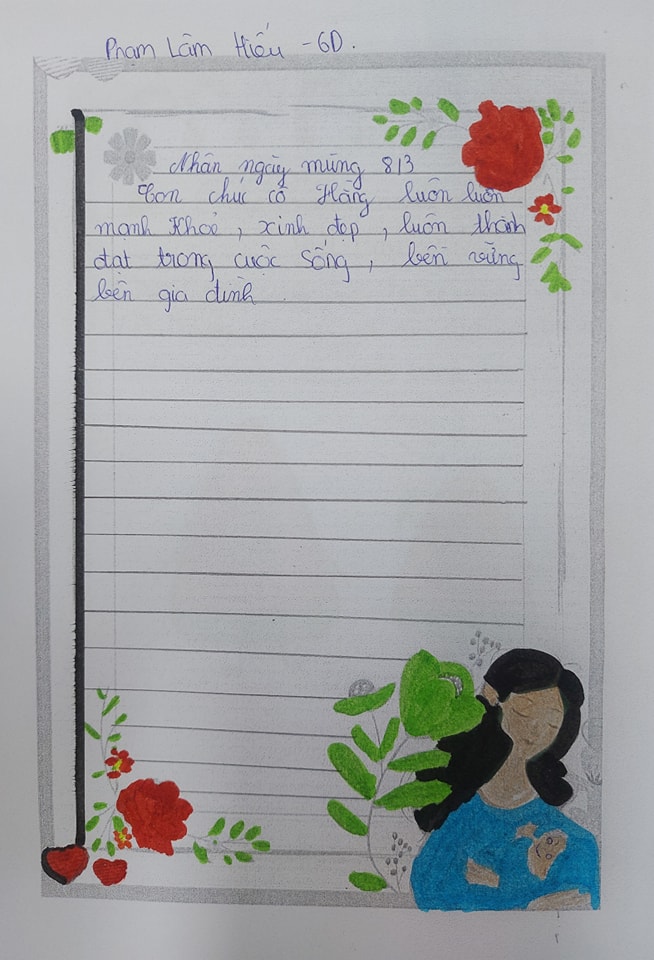 Phạm Lâm Hiếu - 6D.
Nhân ngày mùng 8/3
Con chúc cô Hằng luôn luôn
mạnh khoẻ, xinh đẹp, luôn thành
đạt trong cuộc sống, bền vững
bên gia đình